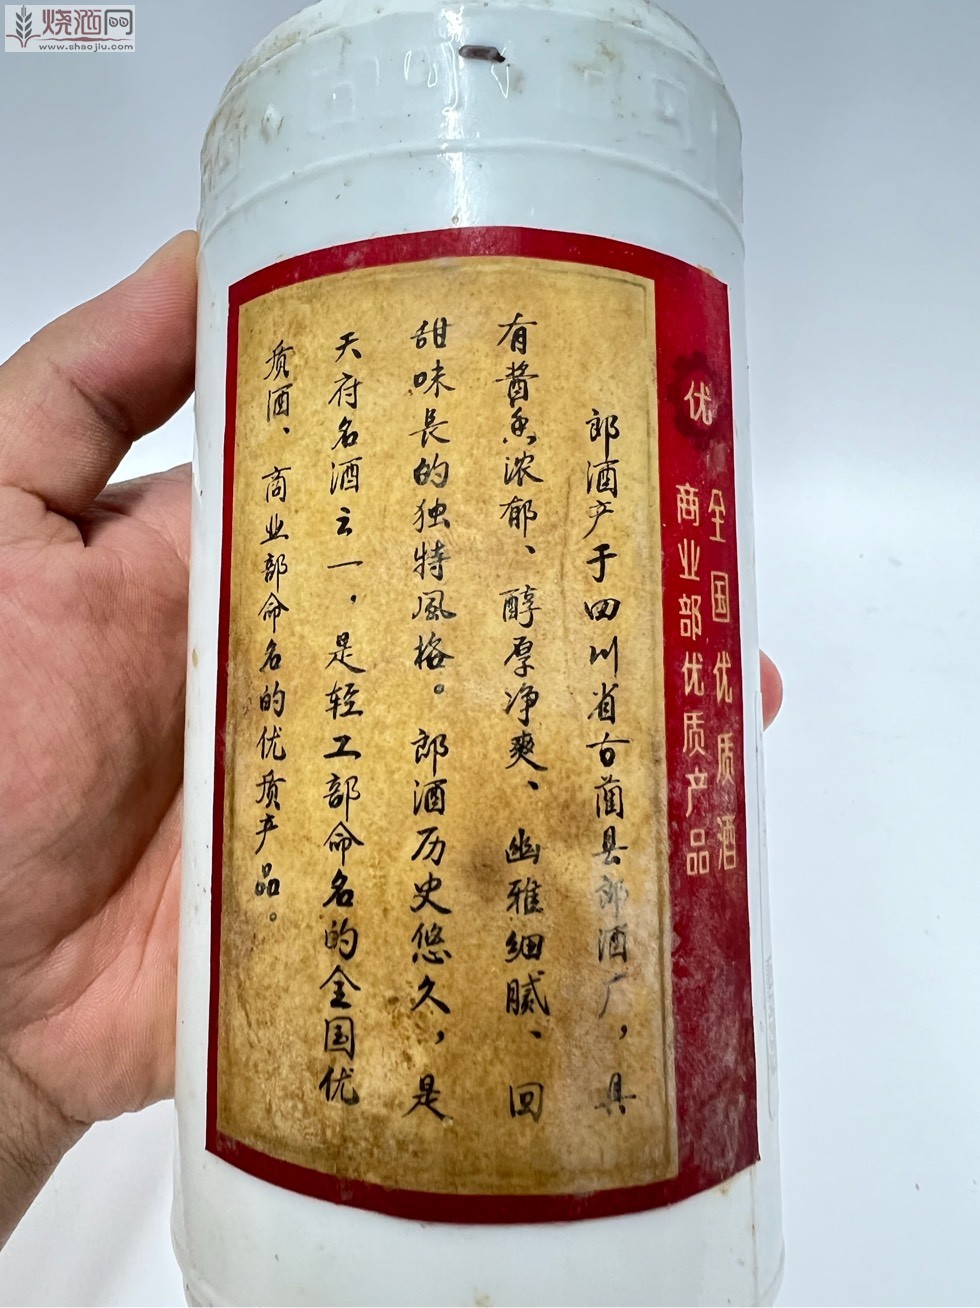 烧酒网
www.shaojiu.com
优
全国优质酒
商业部优质产品
郎酒产于四川省古蔺县郎酒厂，具
有酱香浓郁、醇厚净爽、幽雅细腻、回
甜味長的独特風格。郎酒历史悠久，是
天府名酒之一，是轻工部命名的全国优
质酒、商业部命名的优质产品。